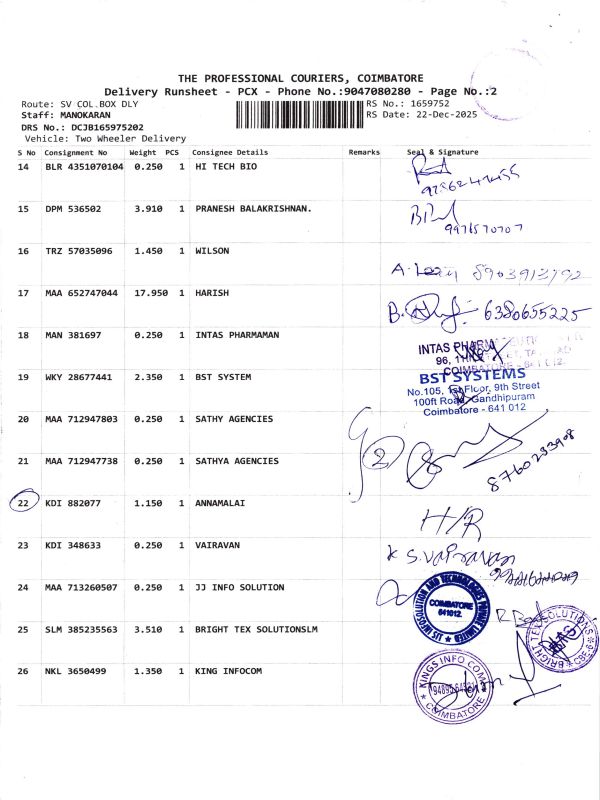 THE PROFESSIONAL COURIERS, COIMBATORE
Delivery Runsheet - PCX - Phone No.:9047080280 - Page No.:2
Route: SV COL.BOX DLY RS No.: 1659752
Staff: MANOKARAN RS Date: 22-Dec-2025
DRS No.: DCJB165975202
Vehicle: Two Wheeler Delivery
S No Consignment No Weight PCS Consignee Details Remarks Seal & Signature
14 BLR 4351070104 0.250 1 HI TECH BIO
15 DPM 536502 3.910 1 PRANESH BALAKRISHNAN.
9971570707
16 TRZ 57035096 1.450 1 WILSON
8903913792
17 MAA 652747044 17.950 1 HARISH
6380655225
18 MAN 381697 0.250 1 INTAS PHARMAMAN
INTAS PHARM
96,
COIMBATORE
19 WKY 28677441 2.350 1 BST SYSTEM
BST SYSTEMS
No.105, 1st Floor, 9th Street
100ft Road, Gandhipuram
Coimbatore - 641 012
20 MAA 712947803 0.250 1 SATHY AGENCIES
21 MAA 712947738 0.250 1 SATHYA AGENCIES
2
8760233908
22 KDI 882077 1.150 1 ANNAMALAI
H/R
23 KDI 348633 0.250 1 VAIRAVAN
K S.Vairavan
24 MAA 713260507 0.250 1 JJ INFO SOLUTION
COIMBATORE
641012.
25 SLM 385235563 3.510 1 BRIGHT TEX SOLUTIONSLM
26 NKL 3650499 1.350 1 KING INFOCOM
KINGS INFO COM
COIMBATORE